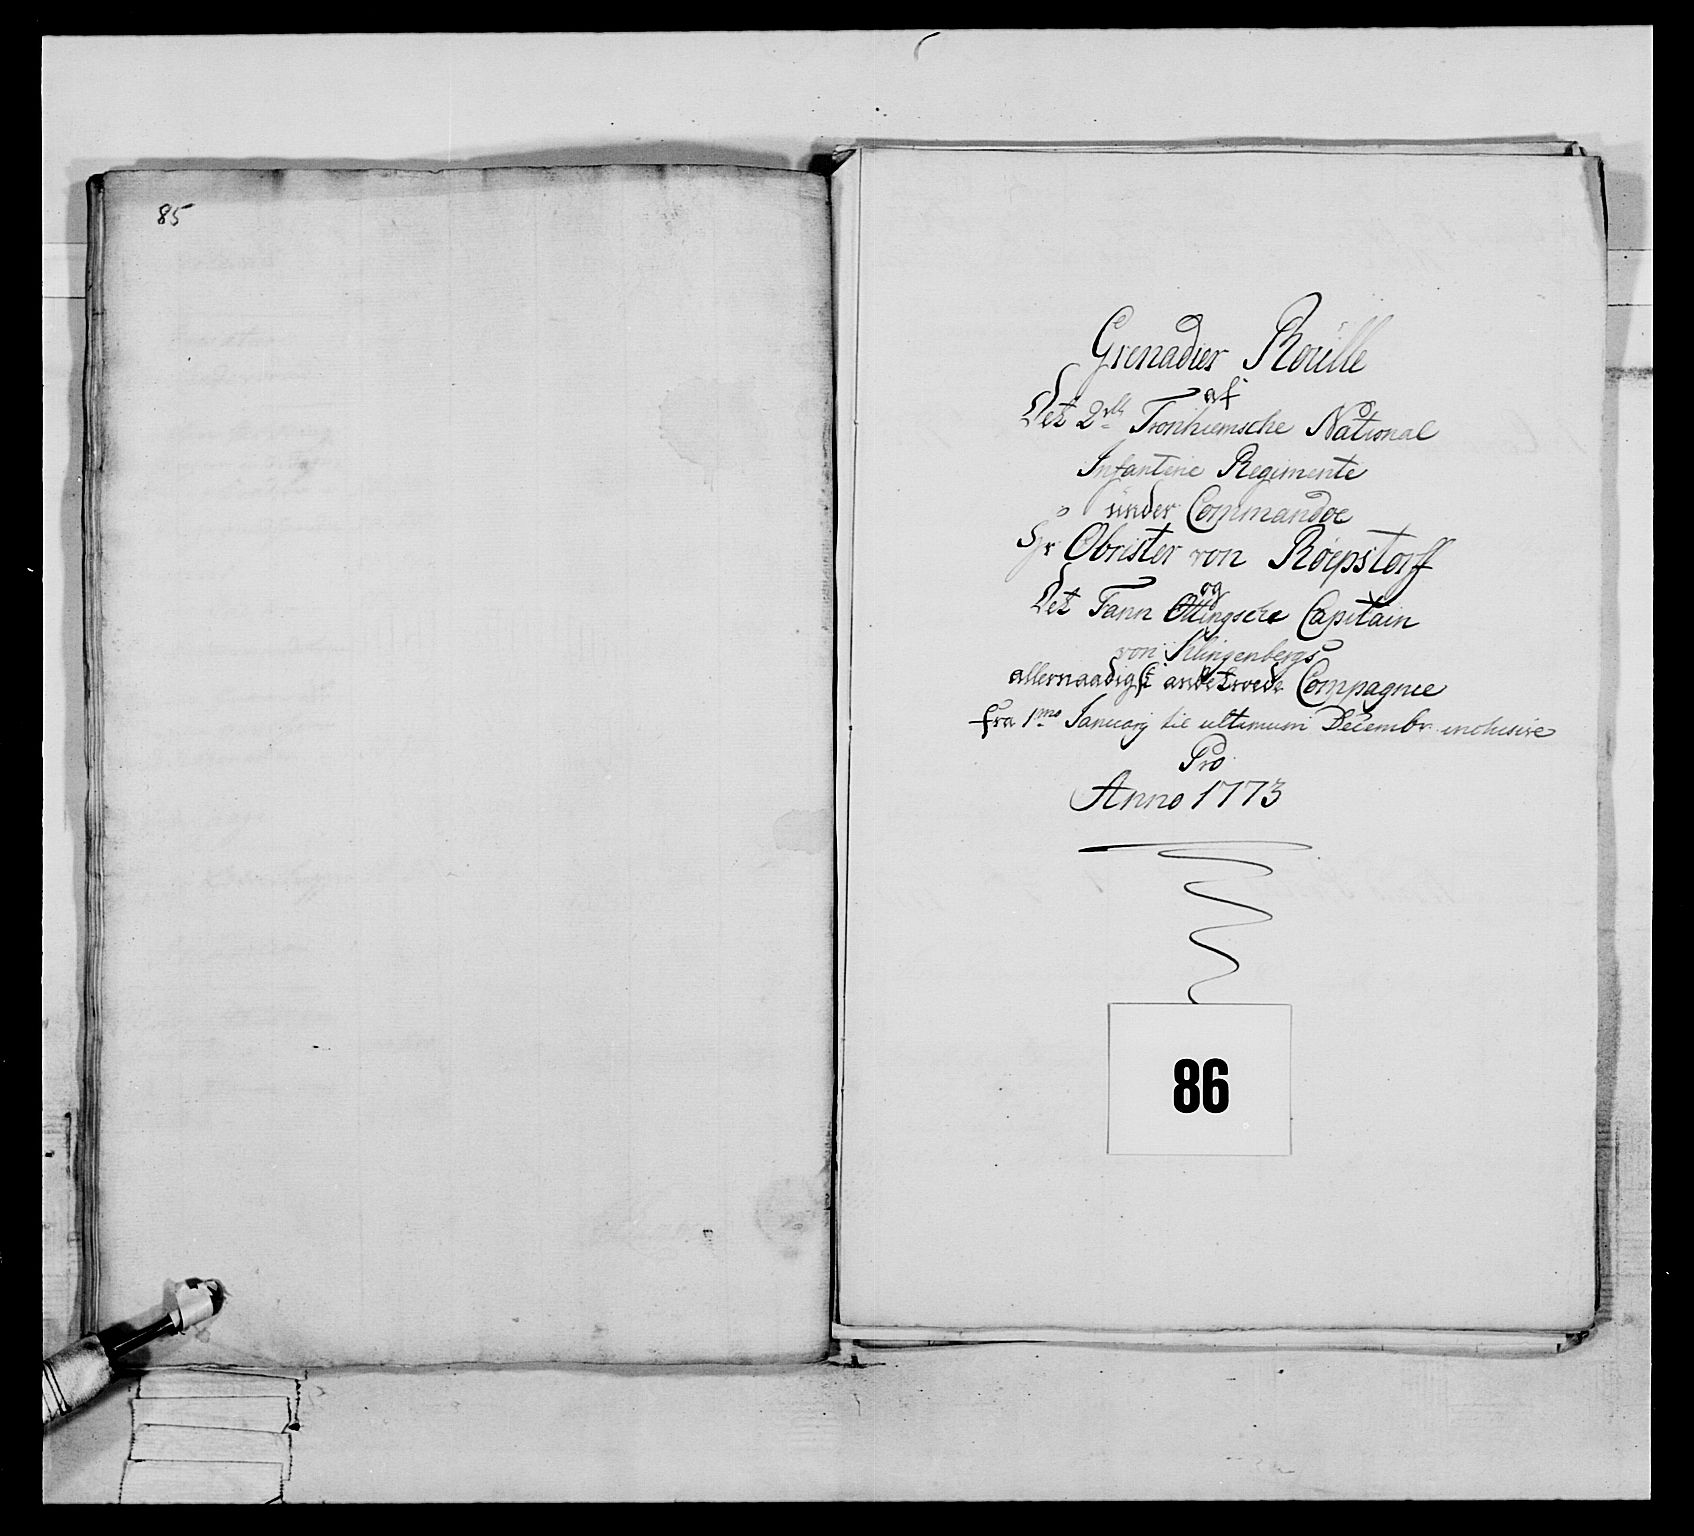 85
Grenadier Roulle
af
Det 2det Tronhiemsche National
Infanterie Regimente
under Commandoe
Hr Obrister von Röepstorff
og
Det Tann Ottingsche Capitain
von Klingenbergs
allernaadigst anbetroede Compagnie
fra 1mo Januarj til ultimum Decembr inclusive
Pro
Anno 1773
86